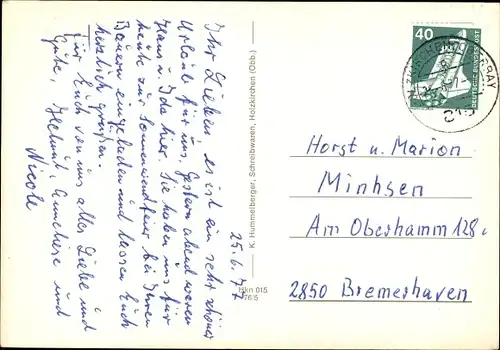 25.6.77
Ihr Lieben, es ist ein sehr schöner
Urlaub für uns. Gestern abend waren
Hans u. Ida hier. Sie haben uns für
heute zur Sonnenwendfeier bei Ihren
Bauern eingeladen und lassen Euch
herzlich grüßen.
Für Euch von uns alles Liebe und
Gute, Helmut, Annchese und
Nicole
K. Hummelberger, Schreibwaren, Holzkirchen (Obb.)
Hkn 015
76/5
40
DEUTSCHE BUNDESPOST
Horst u. Marion
Minhsen
Am Oberhamm 128c
2850 Bremerhaven